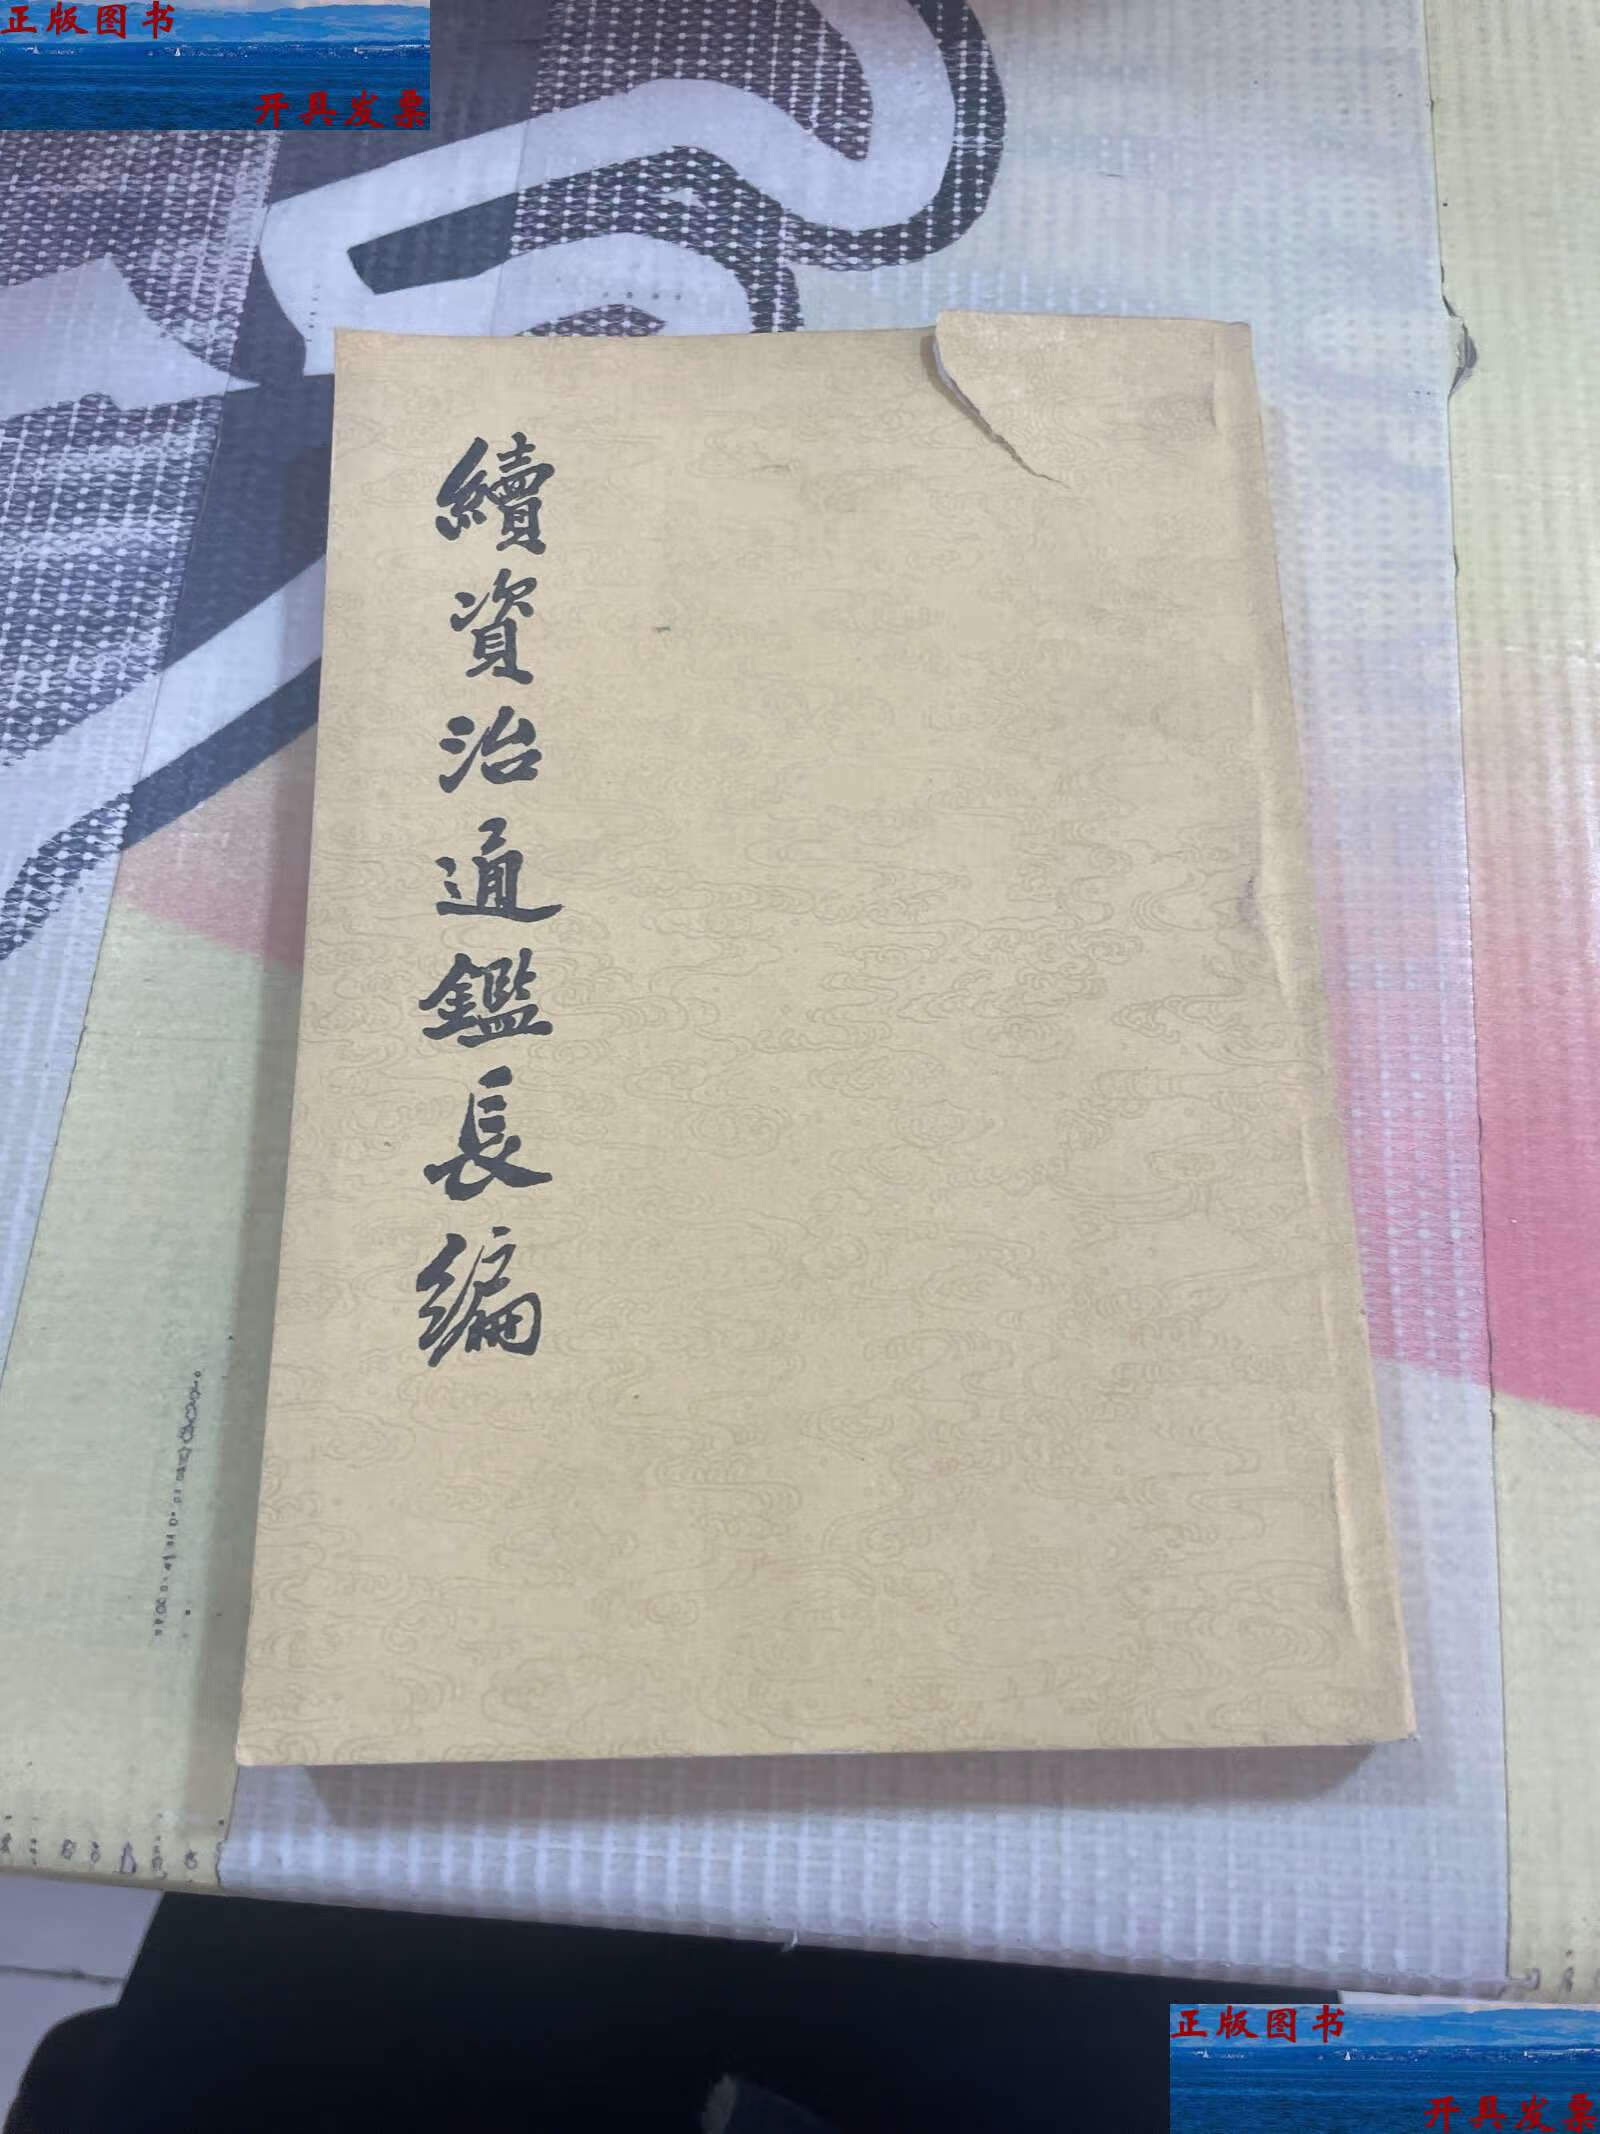 正版图书
开具发票
續資治通鑑長編
正版图书
开具发票